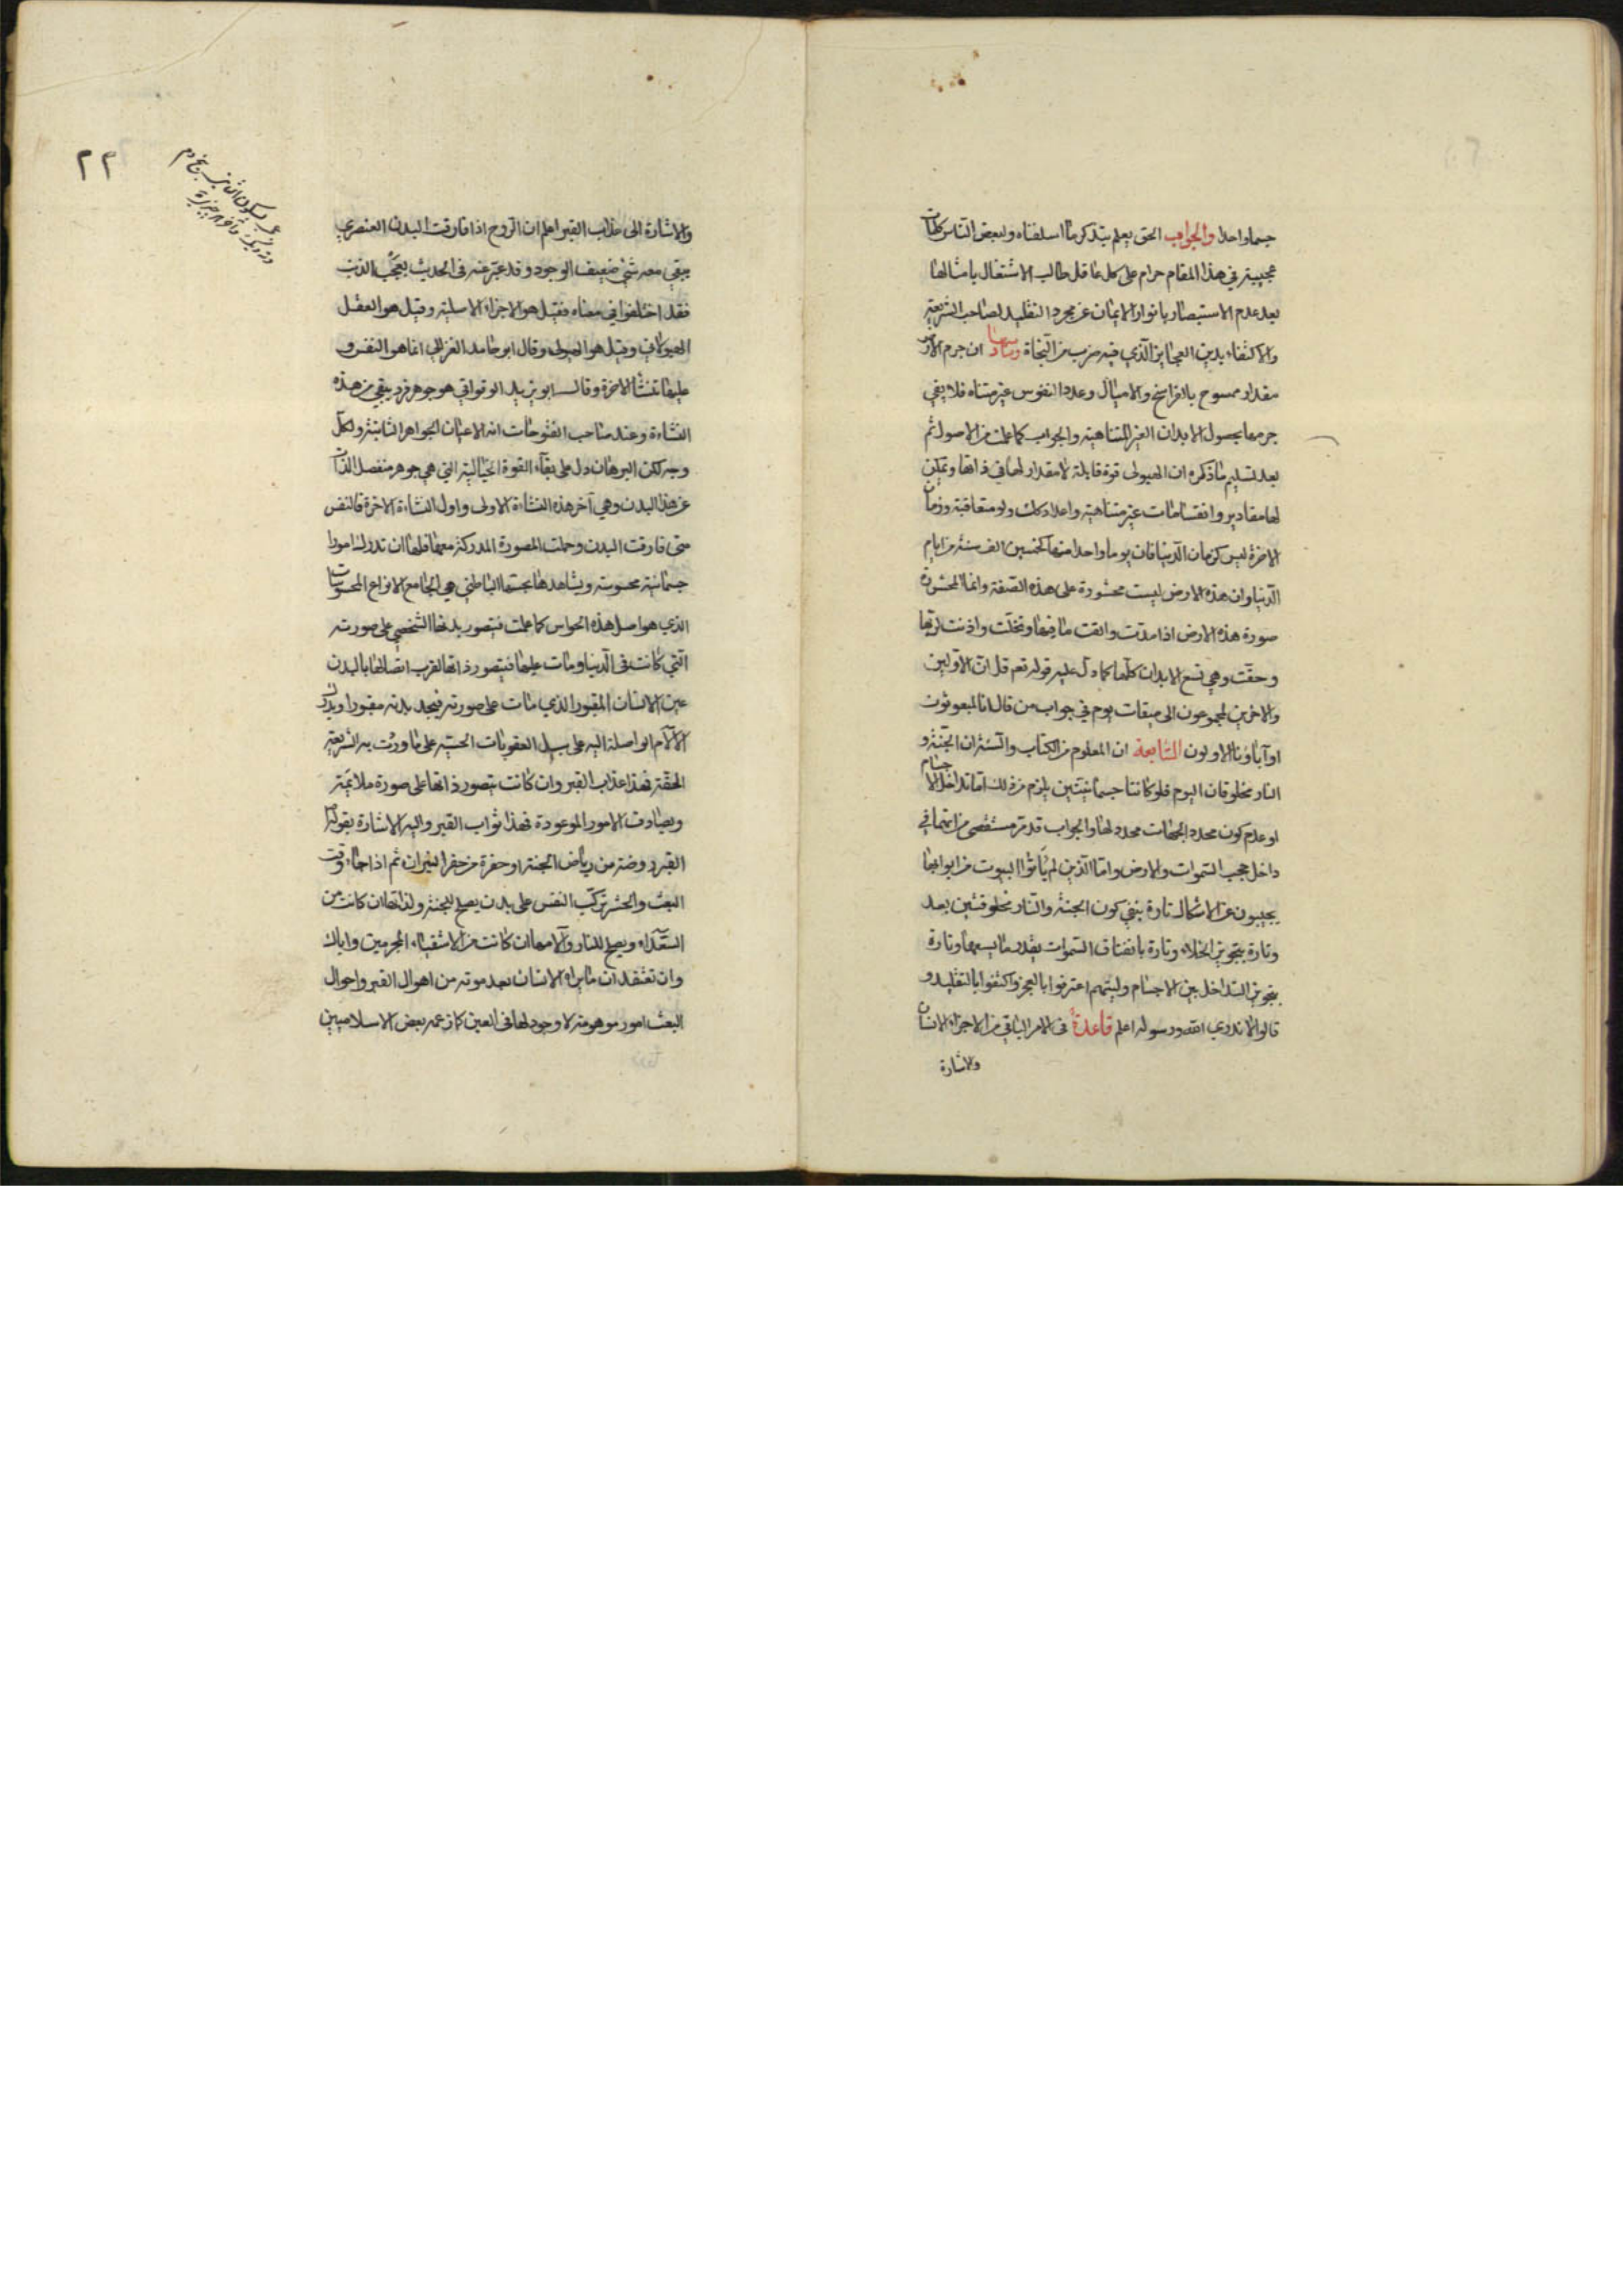 جسما واحدا والجواب الحق يعلم بتذكر ما اسلفناه ولبعض الناس كلمات
عجيبة في هذا المقام حرام على كل عاقل طالب الاشتغال بامثالها
بعد عدم الاستبصار بانوار الايمان عن مجرد التقليد لصاحب الشريعة
والاكتفاء بدين العجايز الذي فيه ضرب من النجاة وسادسها ان جرم الارض
مقدار ممسوح بالفراسخ والاميال وعدد النفوس غير متناه فلا يفي
جرمها بحصول الابدان الغير المتناهية والجواب كما علمت من الاصول ثم
بعد تسليم ما ذكره ان الهيولى قوة قابلة لا مقدار لها في ذاتها ويمكن
لها مقادير وانقسامات غير متناهية واعداد كذلك ولو متعاقبة وزمان
الاخرة ليس كزمان الدنيا فان يوما واحدا منها كخمسين الف سنة من ايام
الدنيا وان هذه الارض ليست محشورة على هذه الصفة وانما المحشورة
صورة هذه الارض اذا مدت والقت ما فيها وتخلت واذنت لربها
وحقت وهي تسع الابدان كلها كما دل عليه قوله تعم قل ان الاولين
والاخرين لمجموعون الى ميقات يوم في جواب من قال انا لمبعوثون
او آباؤنا الاولون السابعة ان المعلوم من الكتاب والسنة ان الجنة و
النار مخلوقان اليوم فلو كانتا جسمانيتين يلزم من ذلك اما تداخل الاجسام
او عدم كون محدد الجهات محدد لها والجواب قد مر مستقصى من انهما في
داخل حجب السموات والارض واما الذين لم يأتوا البيوت من ابوابها
يجيبون عن الاشكال تارة بنفي كون الجنة والنار مخلوقتين بعد
وتارة بتجويز الخلاء وتارة بانفتاق السموات بقدر ما يسعها وتارة
بتجويز التداخل بين الاجسام وليتهم اعترفوا بالعجز واكتفوا بالتقليد و
قالوا لا ندري الله ورسوله اعلم قاعدة في الامر الباقي من الاجزاء الانسان
والاشارة
٢٣
والاشارة الى عذاب القبر اعلم ان الروح اذا فارقت البدن العنصري
يبقى معه شيء ضعيف الوجود وقد عبّر عنه في الحديث بعجب الذنب
فقد اختلفوا في معناه فقيل هو الاجزاء الاصلية وقيل هو العقل
الهيولاني وقيل هو الهيولى وقال ابو حامد الغزالي انما هو النفس و
عليها تنشأ الاخرة وقال ابو يزيد الوقواقي هو جوهر فرد يبقى من هذه
النشاءة وعند صاحب الفتوحات انه الاعيان الجواهر الثابتة ولكل
وجه لكن البرهان دل على بقاء القوة الخيالية التي هي جوهر منفصل الذات
عن هذا البدن وهي آخر هذه النشاءة الاولى واول النشاءة الاخرة فالنفس
متى فارقت البدن وحملت المصورة المدركة معها فلها ان تدرك امورا
جسمانية محسوسة ويشاهدها بحسها الباطني هي الجامع الانواع المحسوسات
الذي هو اصل هذه الحواس كما علمت فيتصور بدنها الشخصي على صورته
التي كانت في الدنيا ومات عليها فيتصور ذاتها لقرب اتصالها بالبدن
عين الانسان المقبور الذي مات على صورته فيجد بدنه مقبورا ويدرك
الآلام الواصلة اليه على سبيل العقوبات الحسية على ما وردت به الشريعة
الحقة فهذا عذاب القبر وان كانت يتصور ذاتها على صورة ملائمة
ويصادف الامور الموعودة فهذا ثواب القبر واليه الاشارة بقوله
القبر روضة من رياض الجنة او حفرة من حفر النيران ثم اذا جاء وقت
البعث والحشر تركب النفس على بدن يصلح للجنة ولذاتها ان كانت من
السعداء ويصلح للنار وآلامها ان كانت من الاشقياء المجرمين واياك
وان تعتقد ان ما يراه الانسان بعد موته من اهوال القبر واحوال
البعث امور موهومة لا وجود لها في العين كما زعمه بعض الاسلاميين